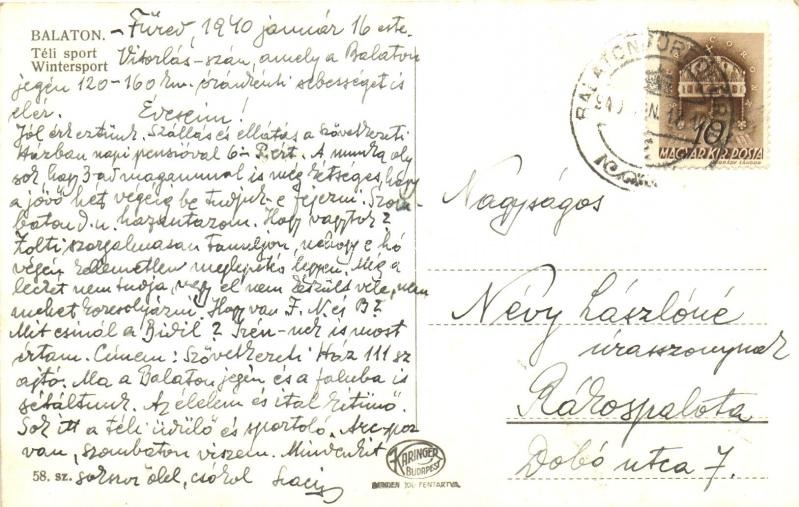 BALATON.
Téli sport
Wintersport
-Füred, 1940 január 16 este.
Vitorlás-szán, amely a Balaton
jegén 120-160 km. óránkénti sebességet is
elér.
Éveseim!
Jól érkeztünk. Szállás és ellátás a Szövetkezeti
Házban napi pensióval 6- P.ért. A munka oly
sok hogy 3-ad magammal is még kétséges, hogy
a jövő hét végéig be tudjuk-e fejezni. Szom-
baton d.u. hazautazom. Hogy vagytok?
Zolti szorgalmasan tanuljon, nehogy e hó
végén kellemetlen meglepetés légyen. Míg a
leckét nem tudja, vagy el nem készült vele, nem
mehet korcsolyázni. Hogy van F. N és B?
Mit csinál a Bidil? Irén-nek is most
írtam. Címem: Szövetkezeti Ház 111 sz
ajtó. Ma a Balaton jegén és a faluba is
sétáltunk. Az élelem és ital kitünő.
Sok itt a téli üdülő és sportoló. Arc-poz
van, szombaton viszem. Mindenkit
sokszor ölel, csókol Laci
58. sz.
KARINGER
BUDAPEST
MINDEN JOG FENTARTVA.
MAGYAR KIR. POSTA
10
Nagyságos
Névy Lászlóné
úrasszonynak
Rákospalota
Dobó utca 7.